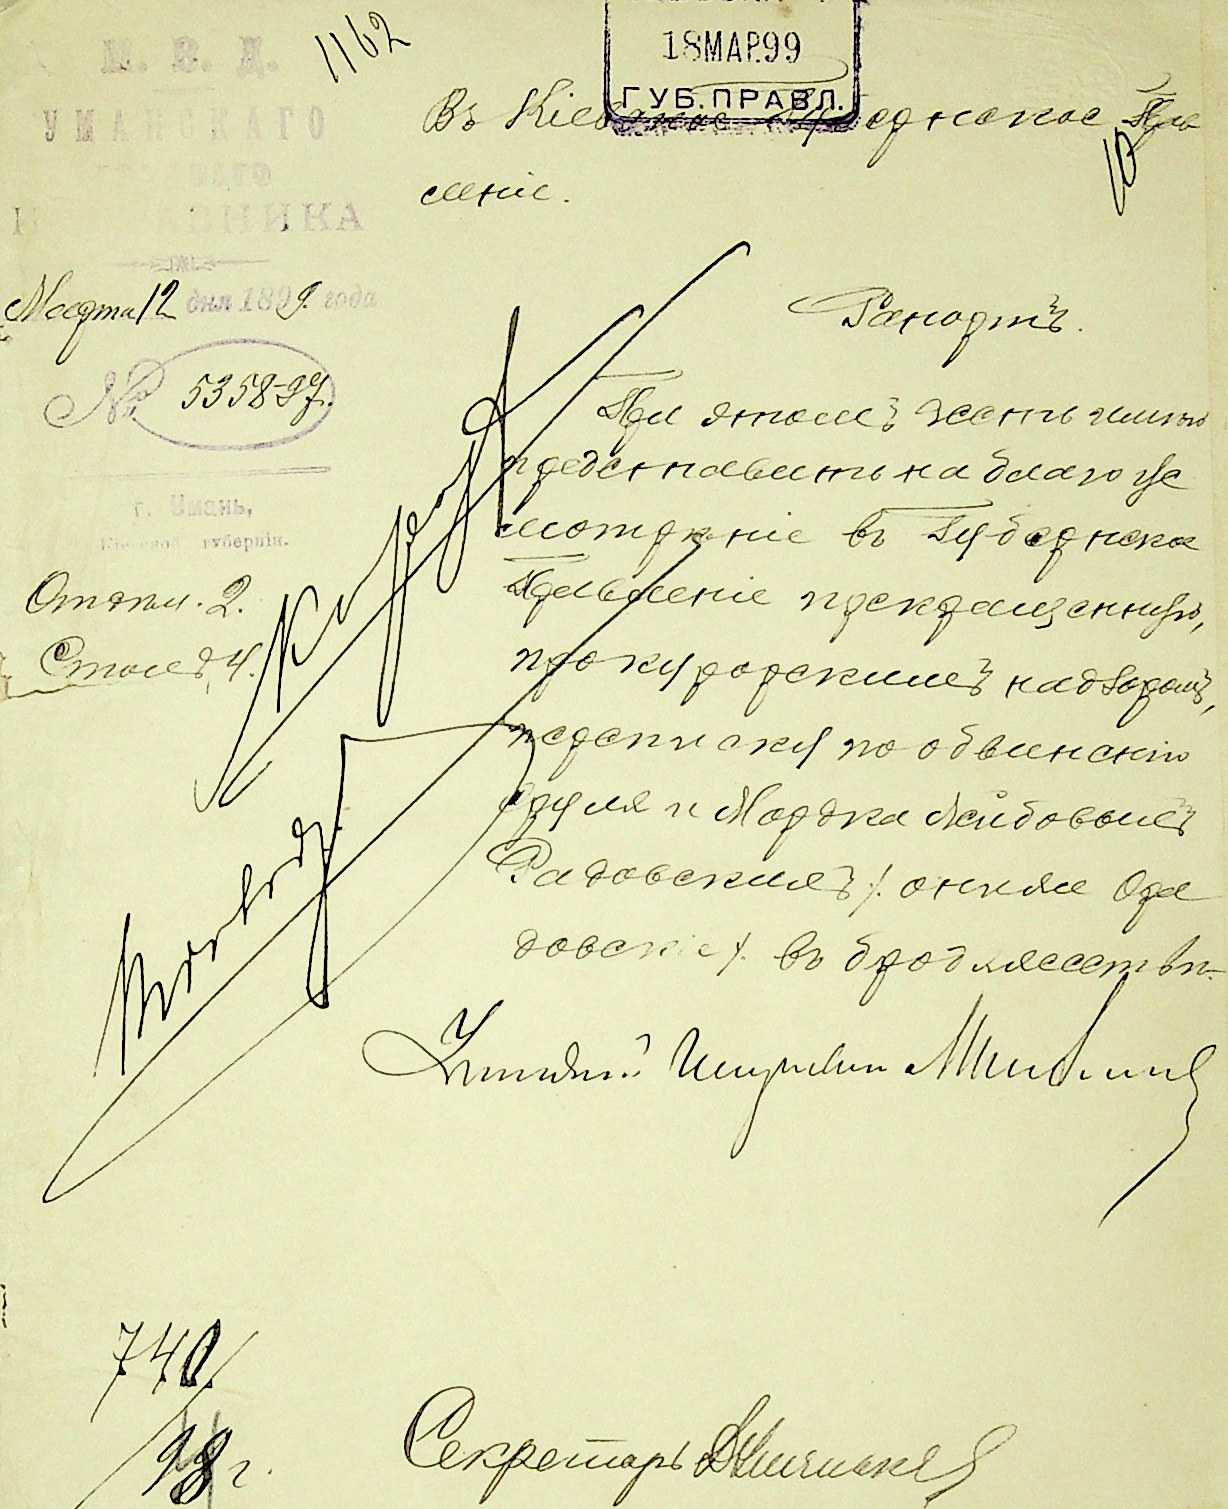 М. В. Д.
УМАНСКАГО
ИСПРАВНИКА
Марта 12 дня 1899 года
№ 5358-97.
г. Умань,
Кіевской губерніи.
Отдѣл. 2.
Столъ 4.
1162
18 МАР. 99
ГУБ. ПРАВЛ.
Въ Кіевское Губернское Прав
леніе.
10
Рапортъ.
При этомъ честь имѣю
представить на благоус
мотрѣніе въ Губернское
Правленіе прекращенную,
прокурорскимъ надзоромъ,
переписку по обвиненію
Сруля и Мордка Лейбовыхъ
Радовскихъ /. они же Ора
довскіе /. въ бродяжествѣ.
Исправникъ
740
98 г.
Секретарь